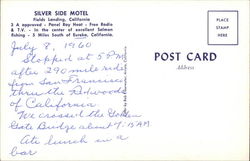 SILVER SIDE MOTEL
Fields Landing, California
3 A approved - Panel Ray Heat - Free Radio
& T.V. - In the center of excellent Salmon
fishing - 5 Miles South of Eureka, California.
July 8, 1960
Stopped at 5 P.M.
after 290 mile ride
from San Francisco
thru the Redwoods
of California
We crossed the Golden
Gate Bridge about 9:15 A.M.
Ate lunch in a
bar
POST CARD
Address